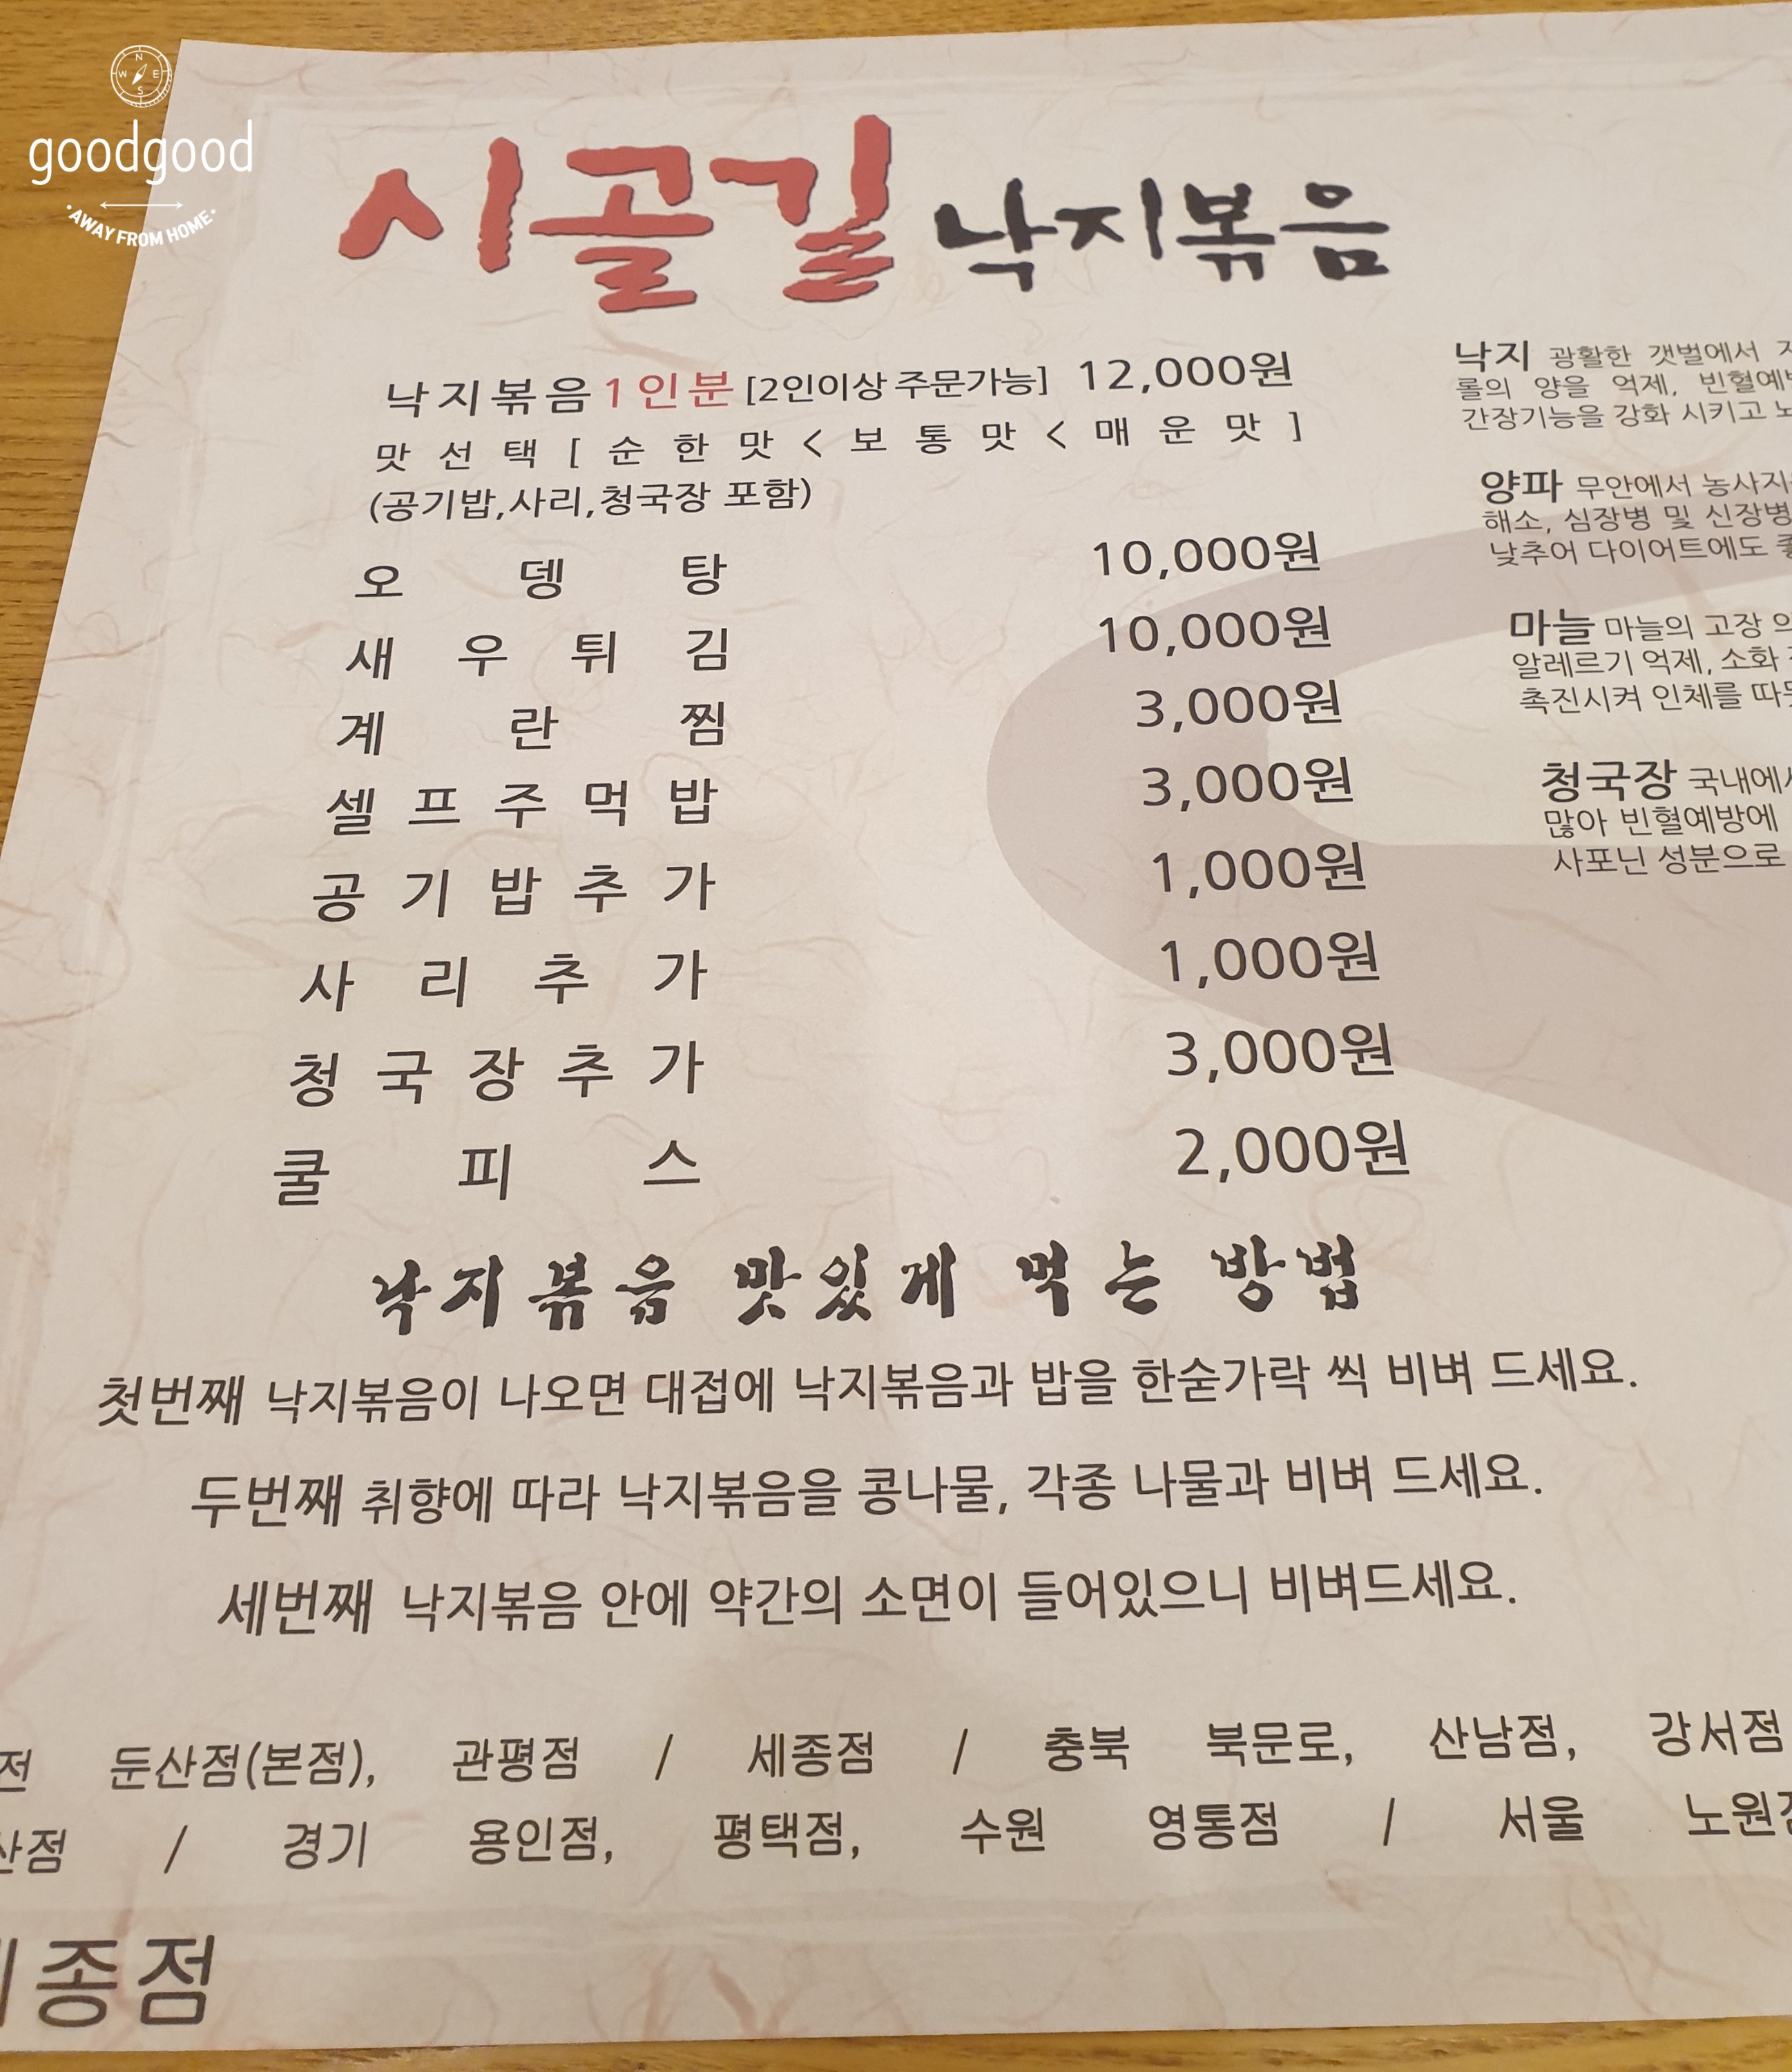 N
W E
S
goodgood
AWAY FROM HOME
시골길 낙지볶음
낙지볶음 1인분 [2인이상 주문가능] 12,000원
맛 선 택 [ 순 한 맛 < 보 통 맛 < 매 운 맛 ]
(공기밥,사리,청국장 포함)
오 뎅 탕 10,000원
새 우 튀 김 10,000원
계 란 찜 3,000원
셀 프 주 먹 밥 3,000원
공 기 밥 추 가 1,000원
사 리 추 가 1,000원
청 국 장 추 가 3,000원
쿨 피 스 2,000원
낙지 광활한 갯벌에서
롤의 양을 억제, 빈혈예방
간장기능을 강화 시키고
양파 무안에서 농사지
해소, 심장병 및 신장병
낮추어 다이어트에도
마늘 마늘의 고장
알레르기 억제, 소화
촉진시켜 인체를
청국장 국내에서
많아 빈혈예방에
사포닌 성분으로
낙지볶음 맛있게 먹는 방법
첫번째 낙지볶음이 나오면 대접에 낙지볶음과 밥을 한숟가락 씩 비벼 드세요.
두번째 취향에 따라 낙지볶음을 콩나물, 각종 나물과 비벼 드세요.
세번째 낙지볶음 안에 약간의 소면이 들어있으니 비벼드세요.
전 둔산점(본점), 관평점 / 세종점 / 충북 북문로, 산남점, 강서점
산점 / 경기 용인점, 평택점, 수원 영통점 / 서울 노원점
세종점